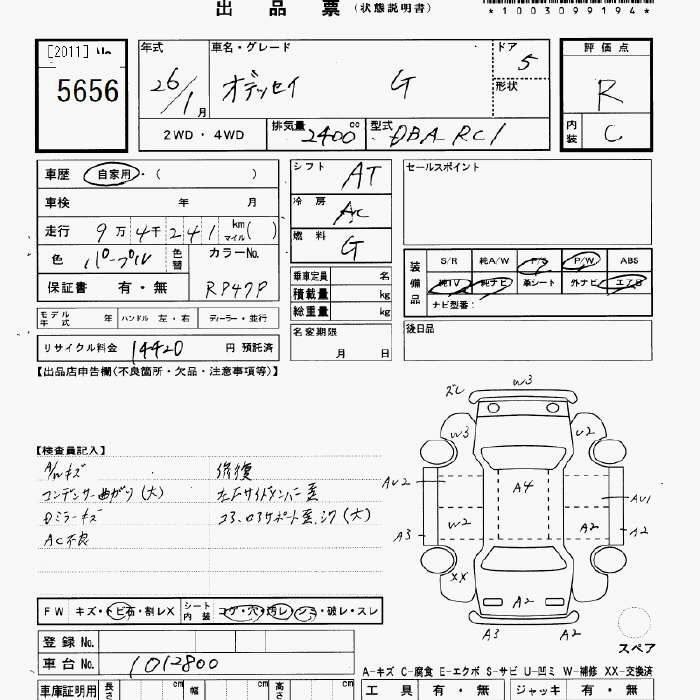 出品票（状態説明書）
*1003099194*
[2011] No
5656
年式 26/1月
車名・グレード オデッセイ G
ドア 5
形状
2WD・4WD
排気量 2400cc
型式 DBA RC1
評価点 R
内装 C
車歴 自家用・( )
車検 年 月
走行 9万4千241 km マイル( )
色 パープル 色替
カラーNo. RP47P
保証書 有・無
モデル年式 年 ハンドル 左・右 ディーラー・並行
リサイクル料金 14420 円 預託済
シフト AT
冷房 AC
燃料 G
乗車定員 名
積載量 kg
総重量 kg
名変期限
月 日
セールスポイント
装備品 S/R 純A/W P/S P/W ABS
純TV 純ナビ 革シート 外ナビ エアB
ナビ型番：
後日品
【出品店申告欄(不良箇所・欠品・注意事項等)】
【検査員記入】
A/Wキズ
コンデンサー曲がり(大)
Dミラーキズ
AC不良
修復
コア、ロアサポート歪、シワ(大)
ズレ W3
W3 U2
AU2 A4 AU1
A3 W2 A2 A2
XX A2
A3 A2
スペア
FW キズ・トビ石・割レX
シート内装 コゲ・穴・汚レ・シミ・破レ・スレ
登録No.
車台No. 1012800
A-キズ C-腐食 E-エクボ S-サビ U-凹ミ W-補修 XX-交換済
車庫証明用 長さ cm 幅 cm 高さ cm
工具 有・無 ジャッキ 有・無